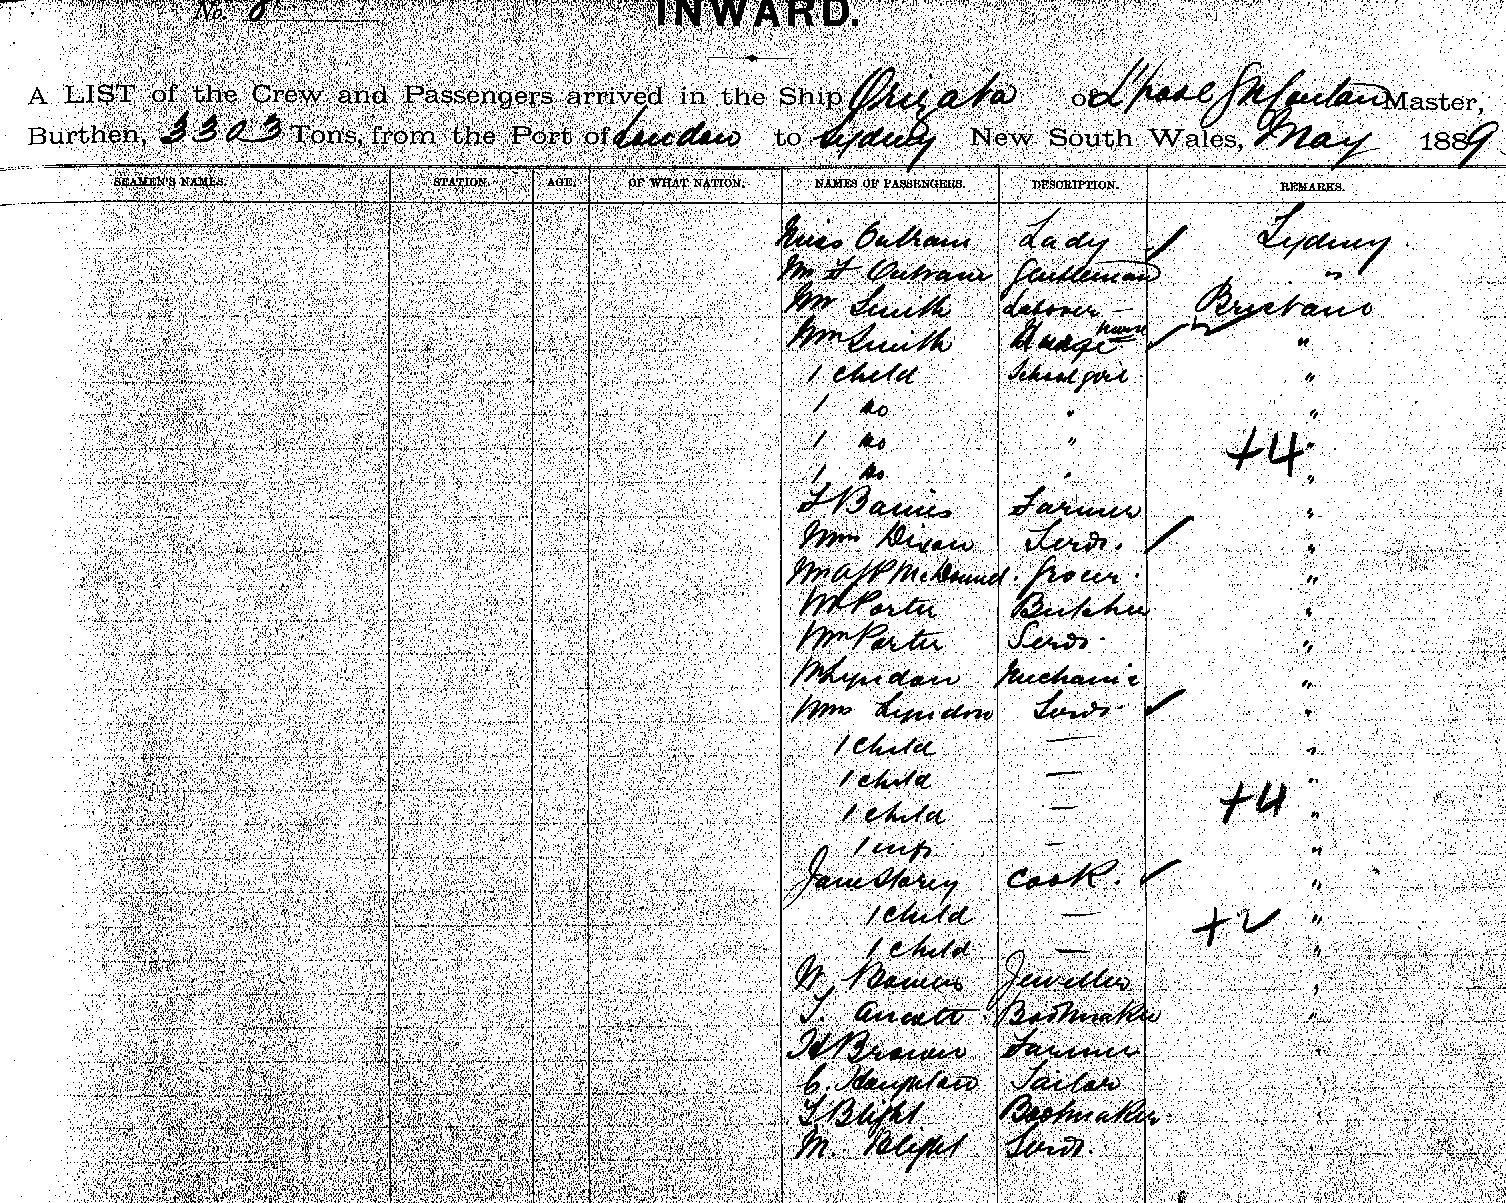 No. 8
INWARD.
A LIST of the Crew and Passengers arrived in the Ship Orizaba of L'pool Master,
Burthen, 3303 Tons, from the Port of London to Sydney New South Wales, May 1889.
SEAMEN'S NAMES. STATION. AGE. OF WHAT NATION. NAMES OF PASSENGERS. DESCRIPTION. REMARKS.
Miss Outram Lady Sydney.
Mr F Outram Gentleman "
Mr Smith Labourer Brisbane
Mrs Smith nurse "
1 child Schoolgirl "
1 do " "
1 do " " +4
1 do " "
Barnes Farmer "
Mrs Dixon Servt. "
McDonnel. Grocer. "
Mr Porter Butcher "
Mrs Porter Servt. "
Mr Lyndon Mechanic "
Mrs Lyndon Servt. "
1 child — "
1 child — "
1 child — " +4
1 inft — "
Jane Storey Cook. "
1 child — " +2
1 child — "
W. Jeweller "
T. Bootmaker "
H Brown Farmer "
C. Tailor
T Blight Bootmaker.
M. Blight Servt.